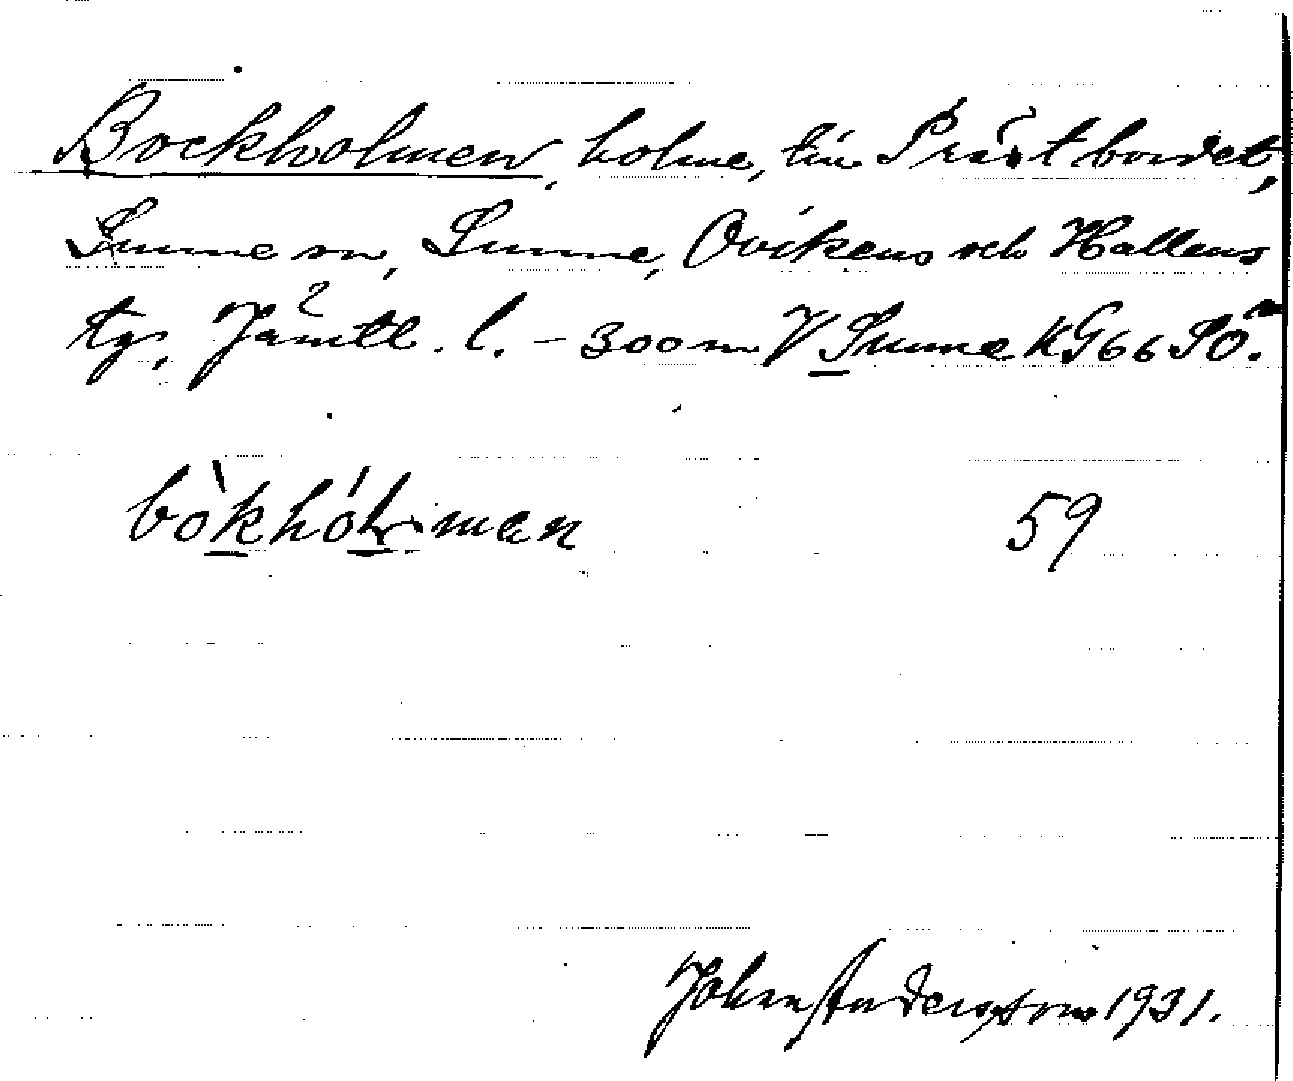 Bockholmen, holme, tin Prästbordet,
Sunne sn, Sunne, Ovikens och Hallens
tg, Jämtl. l. – 300 m V Sunne k G66 SÖ.
bòkhólman 59
John Andersson 1931.